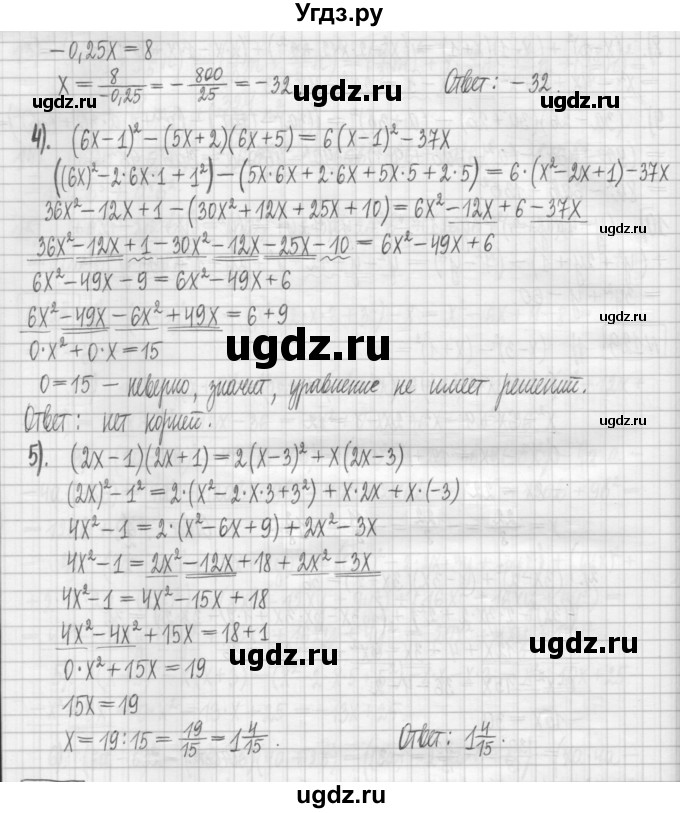 Угдз.ру
-0,25x = 8
x = 8/-0,25 = - 800/25 = -32 Ответ: -32.
ugdz.ru ugdz.ru ugdz.ru
4). (6x-1)² - (5x+2)(6x+5) = 6(x-1)² - 37x
((6x)² - 2·6x·1 + 1²) - (5x·6x + 2·6x + 5x·5 + 2·5) = 6·(x² - 2x + 1) - 37x
36x² - 12x + 1 - (30x² + 12x + 25x + 10) = 6x² - 12x + 6 - 37x
ugdz.ru ugdz.ru
36x² - 12x + 1 - 30x² - 12x - 25x - 10 = 6x² - 49x + 6
6x² - 49x - 9 = 6x² - 49x + 6
6x² - 49x - 6x² + 49x = 6 + 9
ugdz.ru
0·x² + 0·x = 15
ugdz.ru
0 = 15 - неверно, значит, уравнение не имеет решений.
Ответ: нет корней.
ugdz.ru
5). (2x-1)(2x+1) = 2(x-3)² + x(2x-3)
(2x)² - 1² = 2·(x² - 2·x·3 + 3²) + x·2x + x·(-3)
4x² - 1 = 2·(x² - 6x + 9) + 2x² - 3x
ugdz.ru ugdz.ru
4x² - 1 = 2x² - 12x + 18 + 2x² - 3x
4x² - 1 = 4x² - 15x + 18
4x² - 4x² + 15x = 18 + 1
ugdz.ru ugdz.ru
0·x² + 15x = 19
15x = 19
x = 19:15 = 19/15 = 1 4/15. Ответ: 1 4/15.
ugdz.ru
ugdz.ru